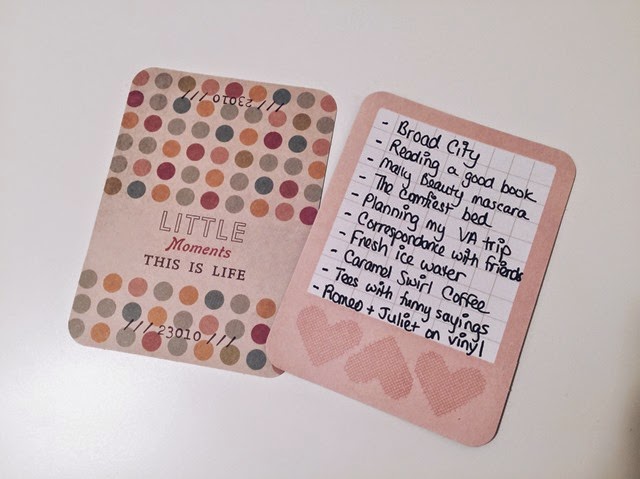 /// 23010 ///
LITTLE
Moments
THIS IS LIFE
/// 23010 ///
- Broad City
- Reading a good book
- Mally Beauty mascara
- The comfiest bed
- Planning my VA trip
- Correspondance with friends
- Fresh ice water
- Caramel Swirl Coffee
- Tees with funny sayings
- Romeo + Juliet on vinyl